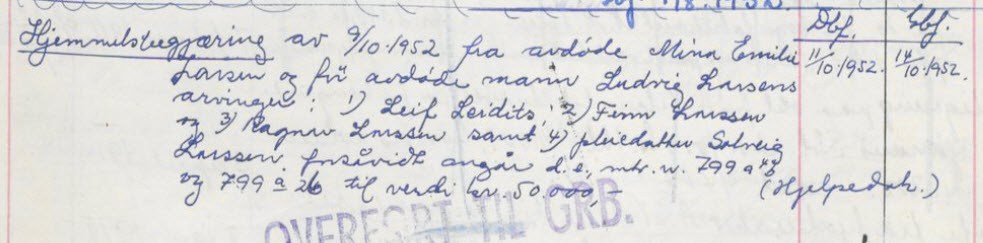 1.8.1952.
Dbf. Gbf.
Hjemmelsbegjæring av 9/10.1952 fra avdøde Minn Emilie 11/10.1952. 14/10.1952.
Larsen og frü avdøde mann Ludvig Larsens
arvinger: 1) Leif Leidits, 2) Finn Larssen
og 3) Ragnar Larssen samt 4) pleiedatter Solveig
Larssen, forsåvidt angår d.e., mtr. n. 799 a 4b
og 799 a 26 til verdi kr. 50.000,- (Hjelpedok.)
OVERFØRT TIL GRB.